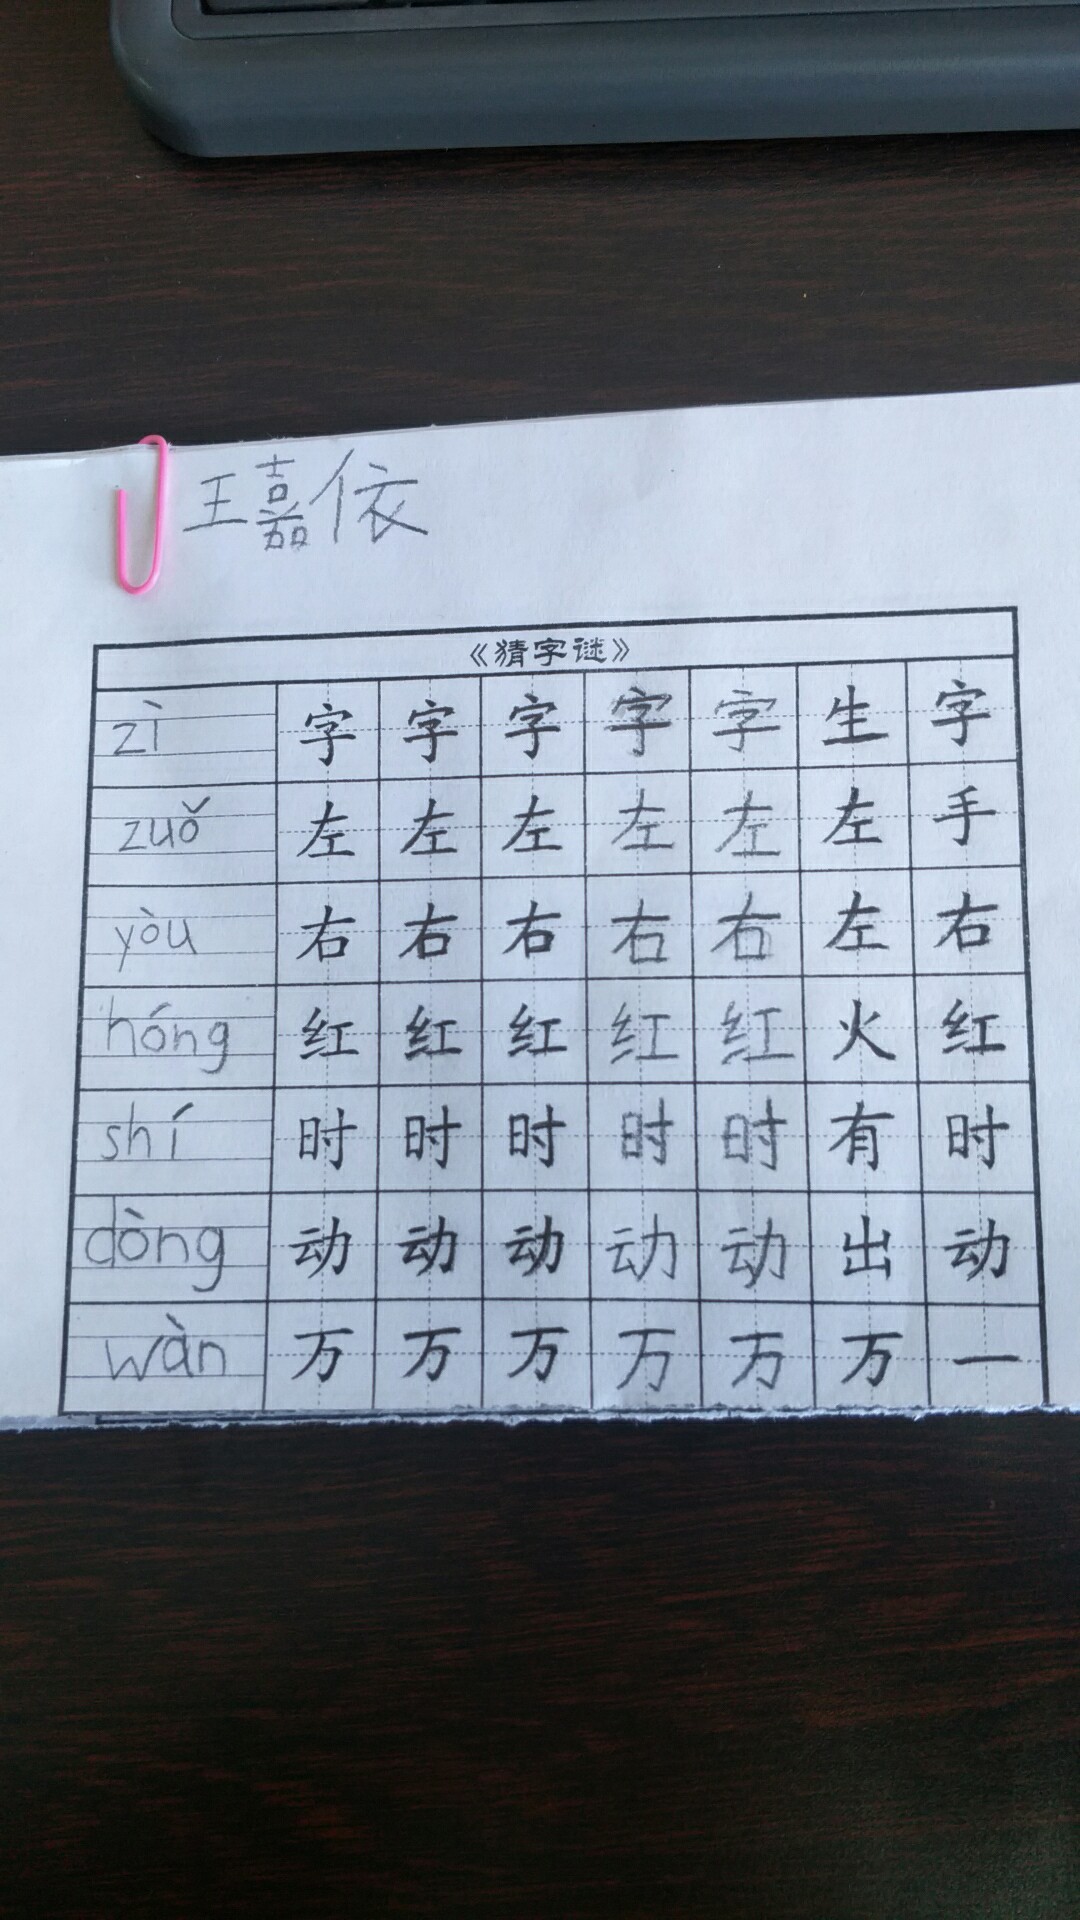 王嘉依
《猜字谜》
zì 字 字 字 字 字 生 字
zuǒ 左 左 左 左 左 左 手
yòu 右 右 右 右 右 左 右
hóng 红 红 红 红 红 火 红
shí 时 时 时 时 时 有 时
dòng 动 动 动 动 动 出 动
wàn 万 万 万 万 万 万 一